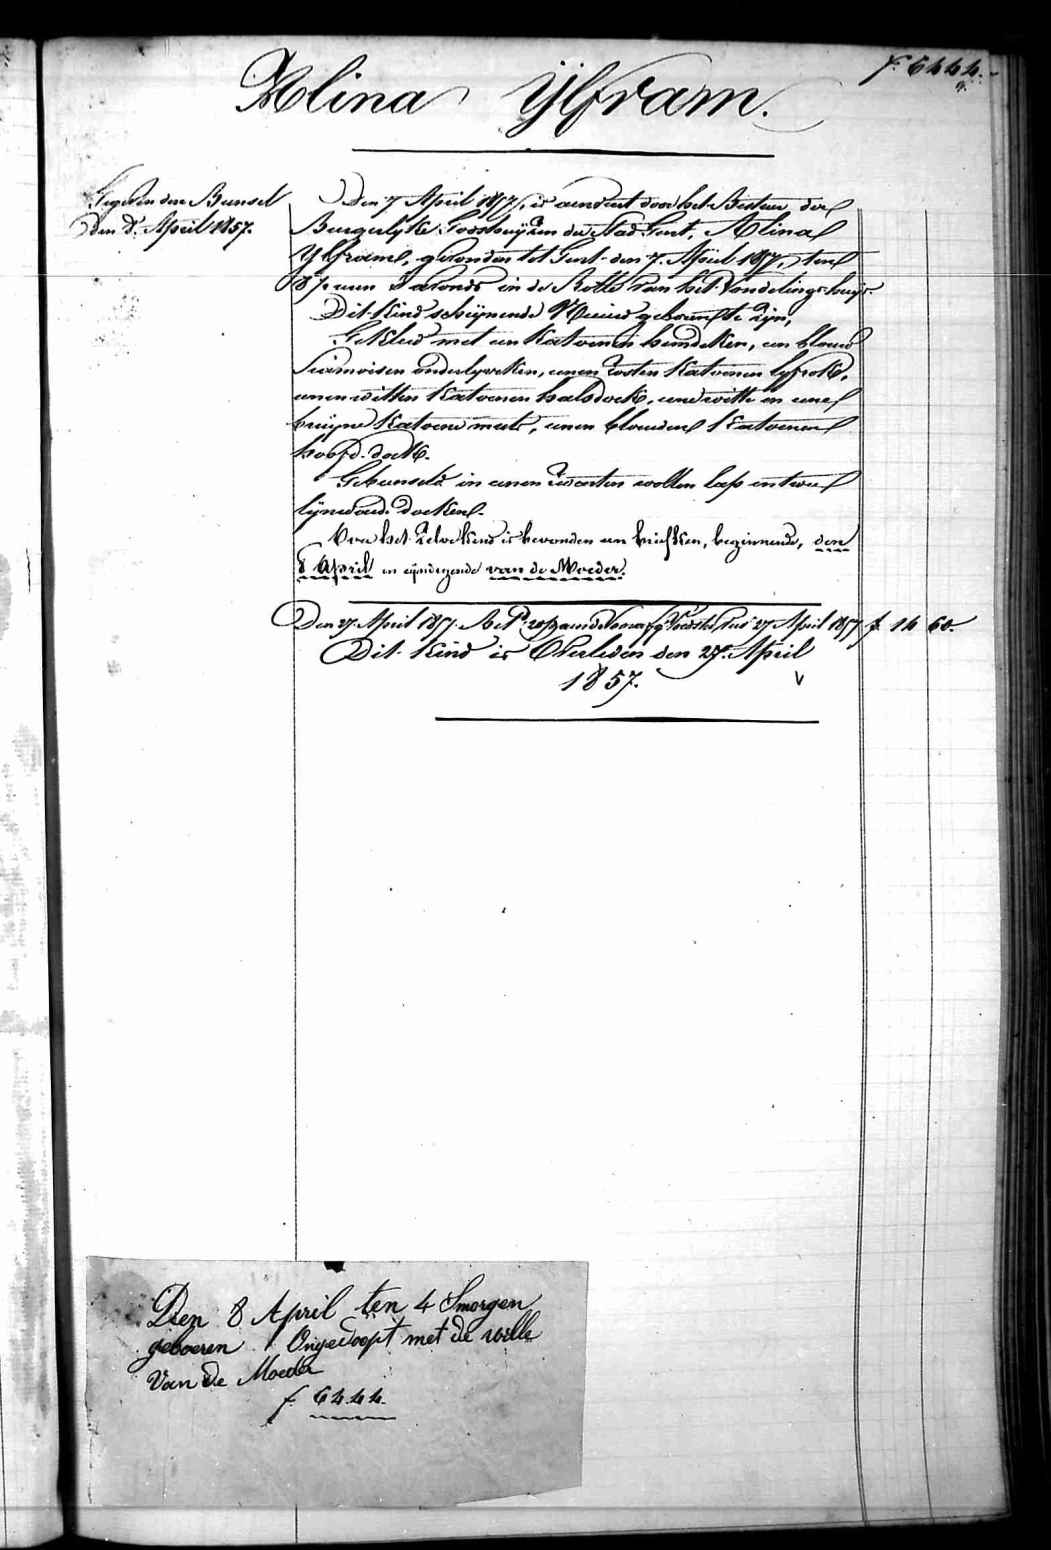 f. 6444.
Alina Ylfram.
Gegeven den Bunsel
den 8. April 1857.
Den 7 April 1857, is aenveert door het Bestuer der
Burgerlyke Godshuyzen der Stad Gent, Alina
Ylfram, gevonden tot Gent den 7. April 1857, ten
8 ½ uren 's avonds in de Rolle van het Vondelingshuys.
Dit kind schynende Nieuw geboren te zyn,
Gekleed met een katoenen hemdeken, een blauw
Siamoisen onderlyveken, eenen rooden katoenen lyfrok,
eenen witten katoenen halsdoek, eene witte en eene
bruyne katoene muts, eenen blauwen katoenen
hoofd-doek.
Gebunseld in eenen zwarten wollen lap en twee
lynwaed doeken.
Over het zelve kind is bevonden een briefken, beginnende, den
8 April en eyndigende van de Moeder.
Den 27 April 1857. 27 April 1857 f. 14 60.
Dit Kind is Overleden den 27. April
1857.
Den 8 April ten 4 Smorgen
geboeren Ongedoopt met de wille
Van de Moeder
f 6444.